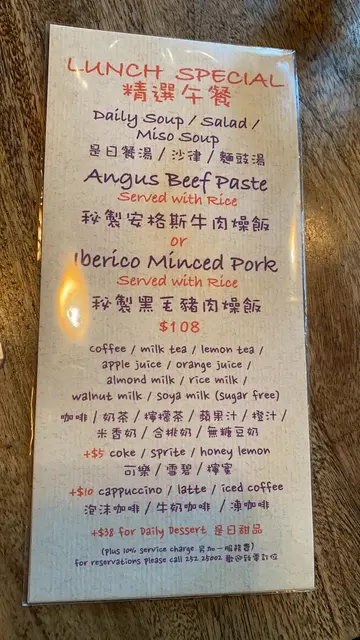 LUNCH SPECIAL
精選午餐
Daily Soup / Salad /
Miso Soup
是日餐湯 / 沙律 / 麵豉湯
Angus Beef Paste
Served with Rice
秘製安格斯牛肉燥飯
or
Iberico Minced Pork
Served with Rice
秘製黑毛豬肉燥飯
$108
coffee / milk tea / lemon tea /
apple juice / orange juice /
almond milk / rice milk /
walnut milk / soya milk (sugar free)
咖啡 / 奶茶 / 檸檬茶 / 蘋果汁 / 橙汁 /
米香奶 / 合桃奶 / 無糖豆奶
+$5 coke / sprite / honey lemon
可樂 / 雪碧 / 檸蜜
+$10 cappuccino / latte / iced coffee
泡沫咖啡 / 牛奶咖啡 / 凍咖啡
+$38 for Daily Dessert 是日甜品
(plus 10% service charge 另加一服務費)
for reservations please call 252 25802 歡迎致電訂位